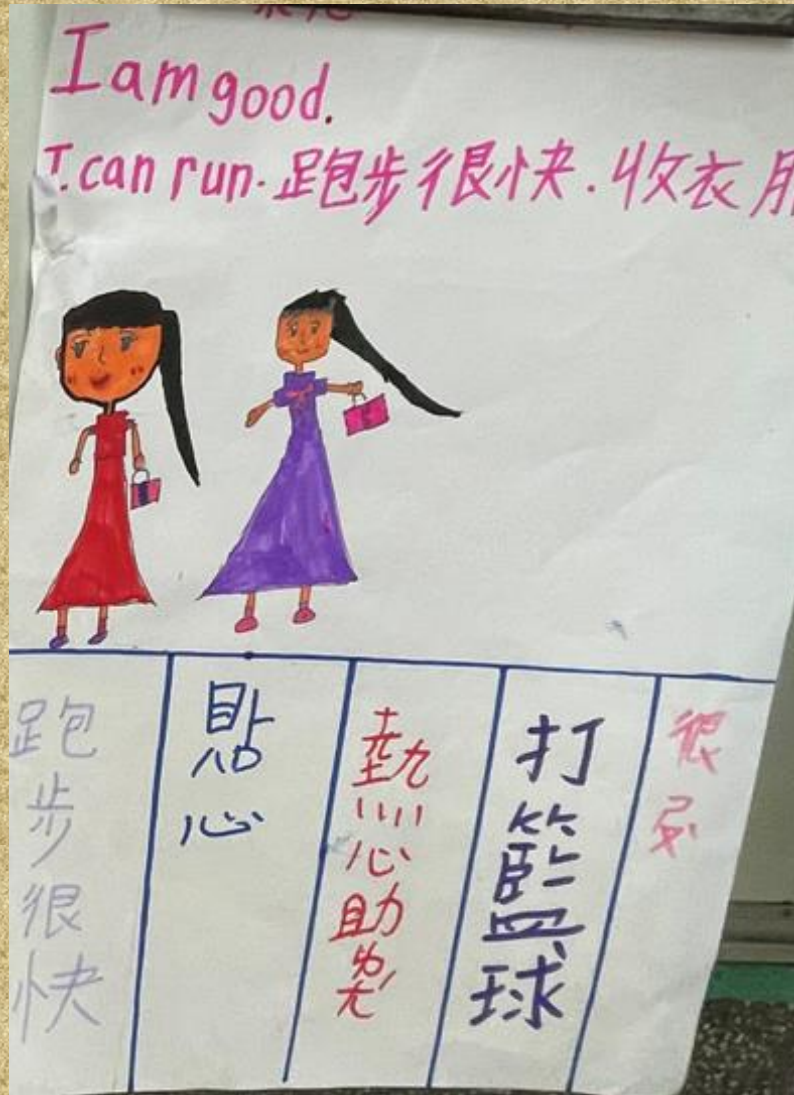 I am good.
I can run. 跑步很快. 收衣
跑步很快
貼心
熱心助
打籃球
很